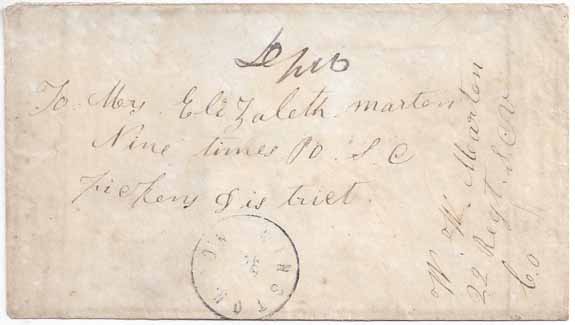 Due
To Mrs Elizabeth marten
Nine times PO. S C
pickens district.
W. W. Marten
22 Regt. S.C.V
Co
NSTON